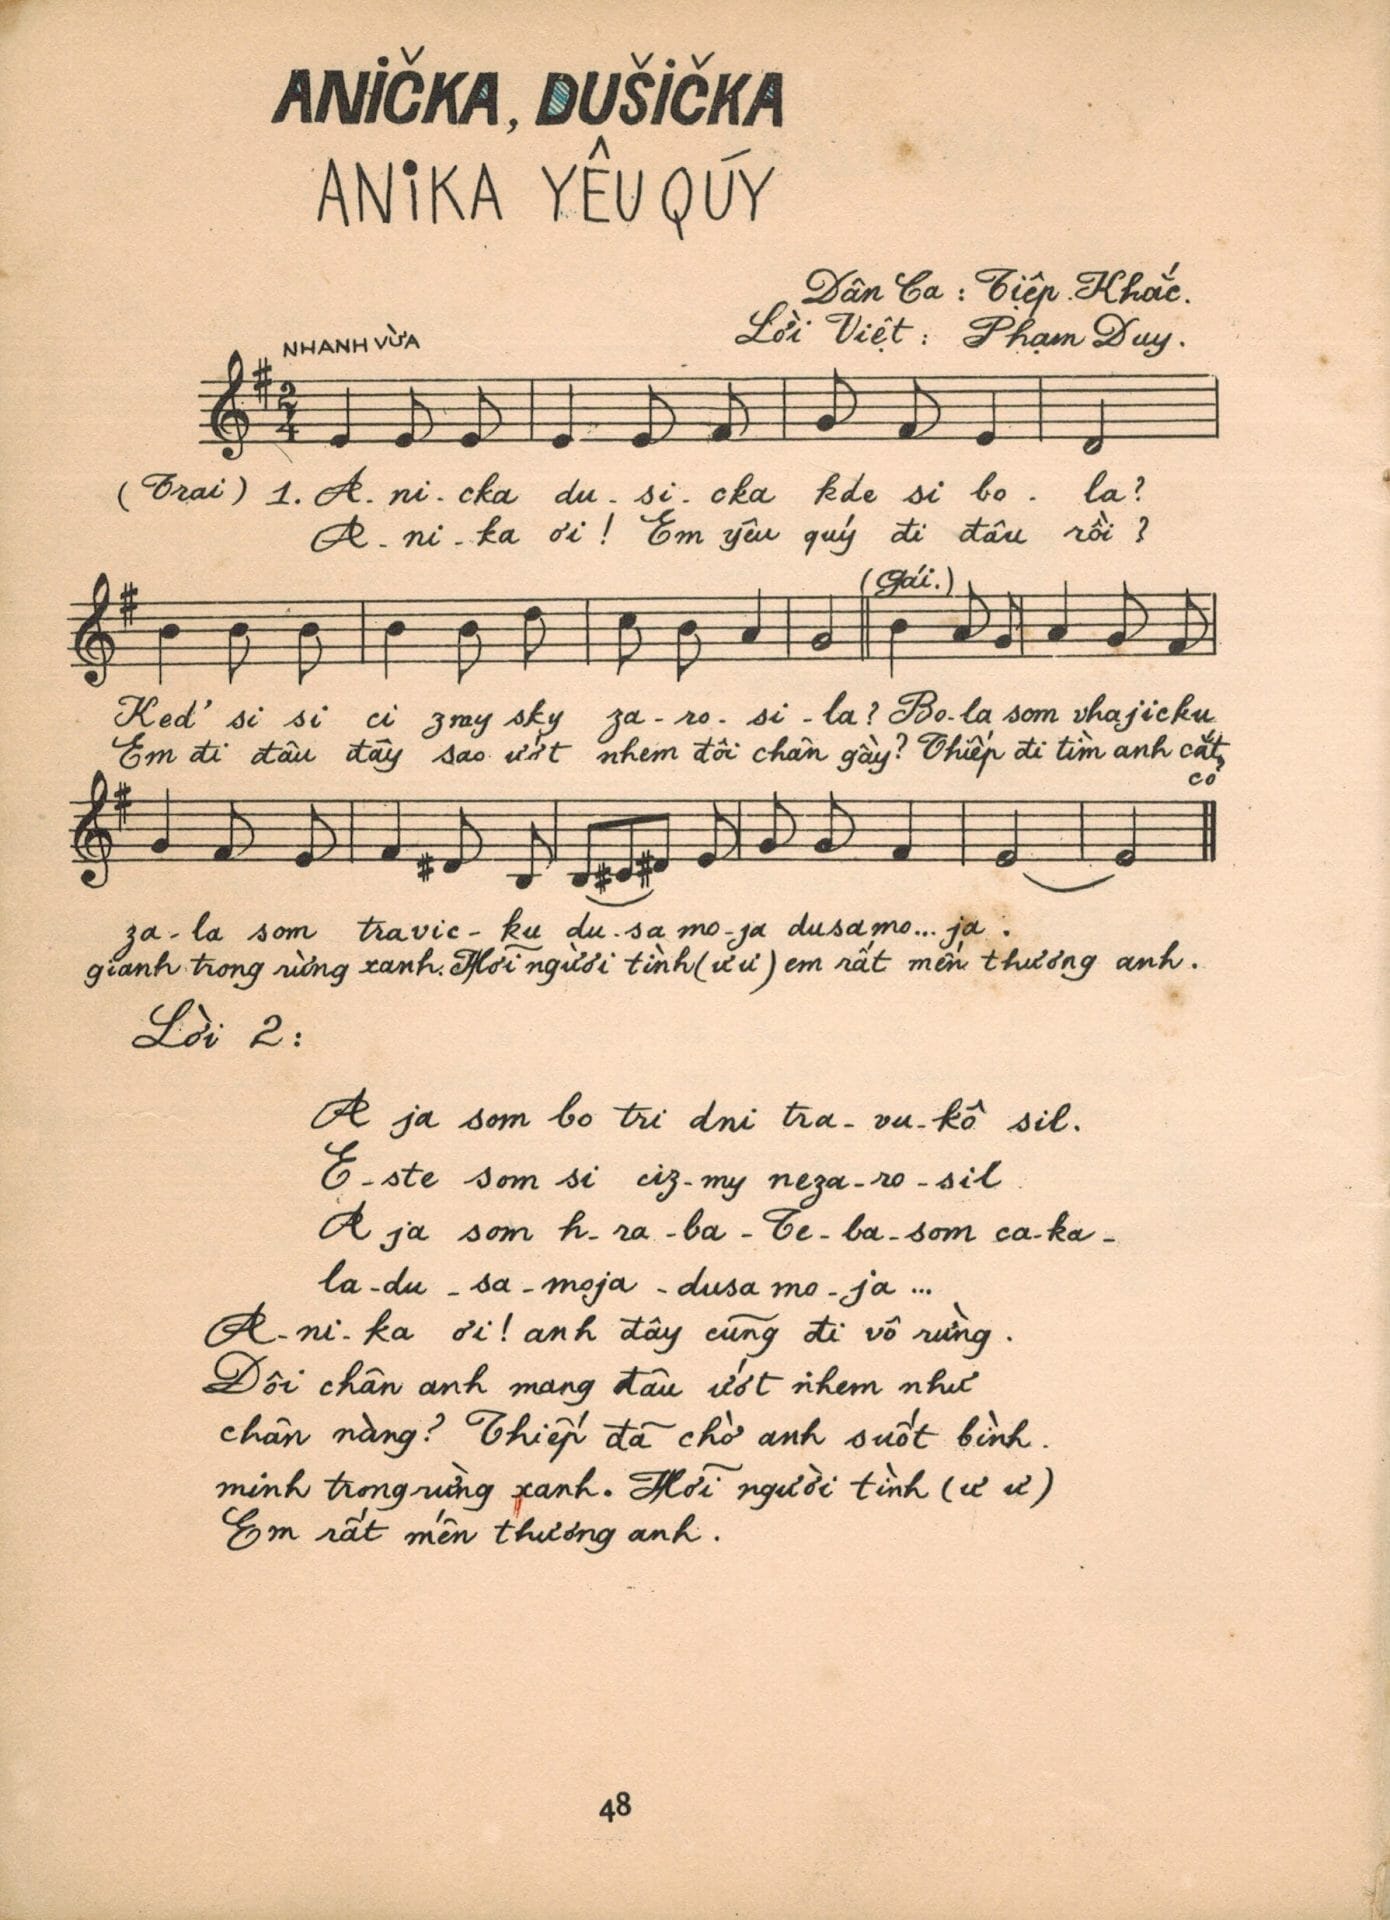 ANIČKA, DUŠIČKA
ANIKA YÊU QÚY
Dân Ca : Tiệp. Khắc.
Lời Việt : Phạm Duy.
NHANH VỪA
2/4
(Trai) 1. A - ni - cka du - si - cka kde si bo - la?
A - ni - ka ơi! Em yêu quý đi đâu rồi?
(Gái.)
Ked' si si ci zmy sky za - ro - si - la? Bo - la som vhajicku
Em đi đâu đây sao ướt nhem đôi chân gầy? Thiếp đi tìm anh cắt
cỏ
za - la som travic - ku du - sa mo - ja dusa mo... ja .
gianh trong rừng xanh. Hỡi người tình (ư ư) em rất mến thương anh.
Lời 2 :
A ja som bo tri dni tra - vu - kô sil.
E - ste som si ciz - my neza - ro - sil
A ja som h - ra - ba - Te - ba - som ca - ka -
la - du - sa - moja - dusa mo - ja ...
A - ni - ka ơi! anh đây cũng đi vô rừng.
Đôi chân anh mang đâu ướt nhem như
chân nàng? Thiếp đã chờ anh suốt bình.
minh trong rừng xanh. Hỡi người tình (ư ư)
Em rất mến thương anh.
48